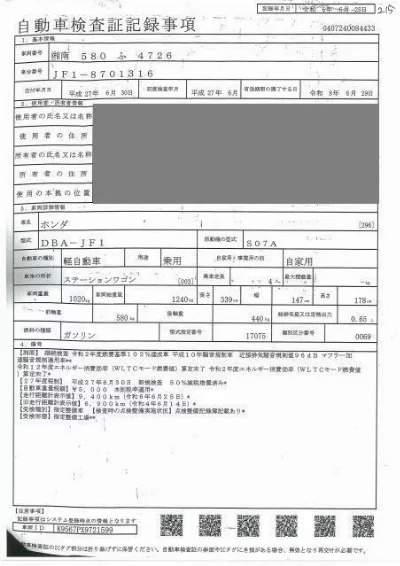 自動車検査証記録事項
記録年月日 令和 6年 6月 25日
215
0407240084433
1. 基本情報
車両番号 湘南 580 ふ 4726
車台番号 JF1-8701316
交付年月日 平成 27年 6月 30日 初度検査年月 平成 27年 6月 有効期間の満了する日 令和 8年 6月 29日
2. 使用者・所有者情報
使用者の氏名又は名称
使用者の住所
所有者の氏名又は名称
所有者の住所
使用の本拠の位置
3. 車両詳細情報
車名 ホンダ [296]
型式 DBA-JF1 原動機の型式 S07A
自動車の種別 軽自動車 用途 乗用 自家用・事業用の別 自家用
車体の形状 ステーションワゴン [003] 乗車定員 4 最大積載量
車両重量 1020kg 車両総重量 1240kg 長さ 339cm 幅 147cm 高さ 178cm
前軸重 580kg 後軸重 440kg 総排気量又は定格出力 0.65L
燃料の種類 ガソリン 型式指定番号 17075 類別区分番号 0069
4. 備考
[湘南] 継続検査 令和2年度燃費基準102%達成車 平成10年騒音規制車 近接排気騒音規制値96dB マフラー加
速騒音規制適用車**
令和12年度エネルギー消費効率(WLTCモード燃費値)算定未了 令和2年度エネルギー消費効率(WLTCモード燃費値
)算定未了*
[27年度税制] 平成27年6月30日 新規検査 50%減税措置済み*
[自動車重量税額] ¥5,000 本則税率適用*
[走行距離計表示値] 9,400km (令和6年6月25日)*
[旧走行距離計表示値] 6,900km (令和4年6月14日)*
[受検種別] 指定整備車 [検査時の点検整備実施状況] 点検整備記録簿記載あり*
[受検形態] 指定整備工場**
[注意事項]
記録事項はシステム登録時点の情報となります
車両ID K9567PX9721599
自動車検査証のICタグ部分は折り曲げずに保管ください。自動車検査証の券面やICタグにき損がある場合、無効となり再交付が必要です。